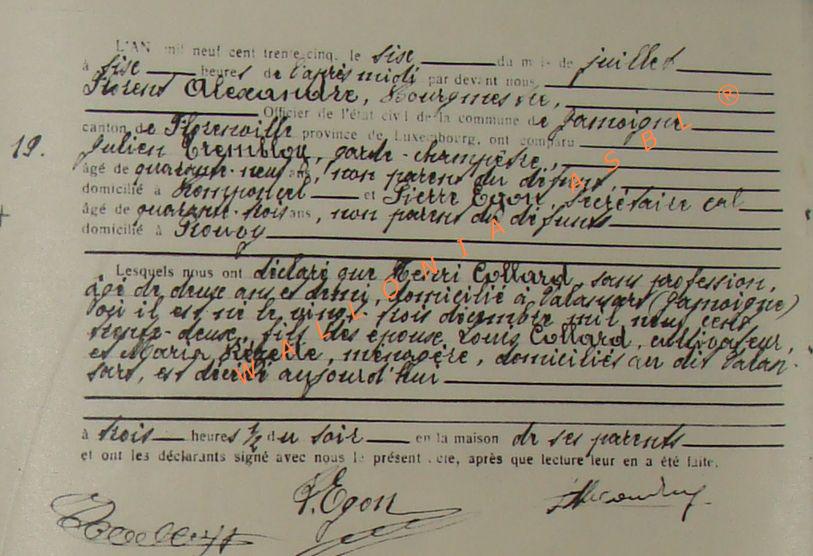 L'AN mil neuf cent trente-cinq, le sise du mois de juillet
à sise heures de l'après midi par devant nous
Florent Alexandre, Bourgmestre,
Officier de l'état civil de la commune de Jamoigne
canton de Florenville province de Luxembourg, ont comparu
19.
Julien Tremblou, garde-champêtre,
âgé de quarante-neuf ans, non parent du défunt,
domicilié à Romponcel et Pierre Egon, secrétaire cal
âgé de quarante-trois ans, non parent du défunt
domicilié à Rouvoy
Lesquels nous ont déclaré que Henri Collard, sans profession,
âgé de deuse ans et demi, domicilié à Valansart (Jamoigne)
où il est né le vingt trois décembre mil neuf cent
trente-deuse, fils des épouse Louis Collard, cultivateur,
et Maria, ménagère, domiciliés au dit Valan-
sart, est décédé aujourd'hui
à trois heures 1/2 du soir en la maison de ses parents
et ont les déclarants signé avec nous le présent acte, après que lecture leur en a été faite.
P. Egon
WALLONIA ASBL ®